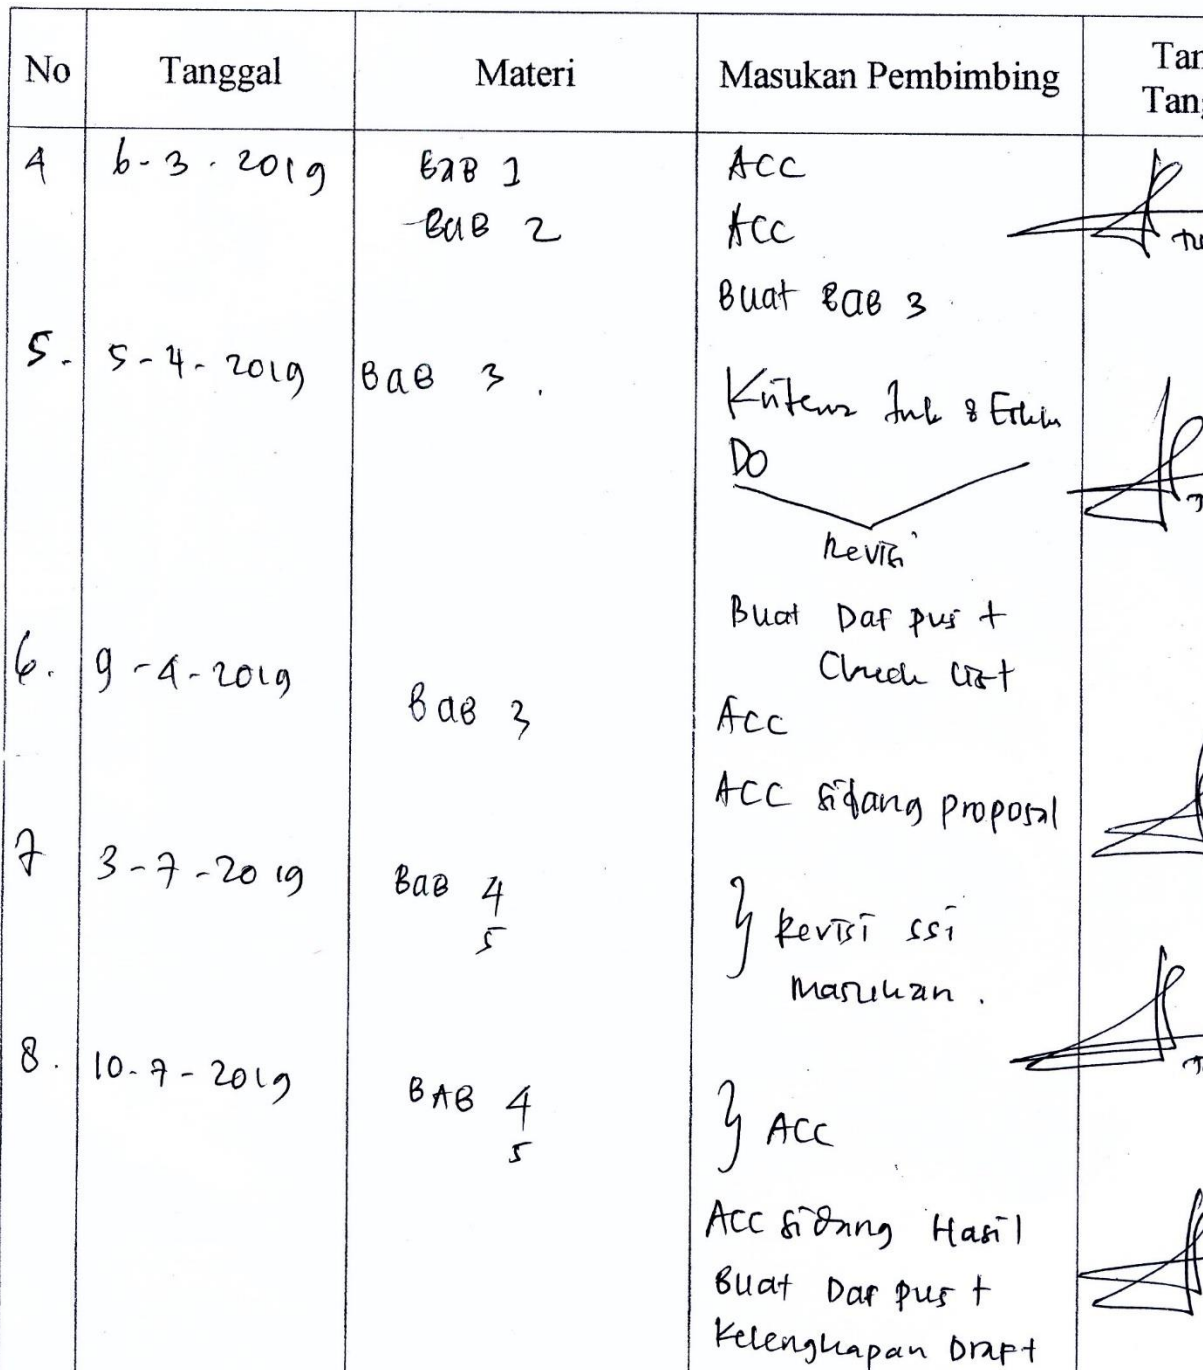 No Tanggal Materi Masukan Pembimbing Tan
Tang
4 6-3-2019 BAB 1 ACC
BAB 2 ACC
Buat BAB 3.
5. 5-4-2019 BAB 3. Kriteria Ink & Eksklu
DO
Revisi
Buat Daf pus +
Check list
6. 9-4-2019 BAB 3 ACC
ACC sidang proposal
7 3-7-2019 BAB 4 } Revisi ssi
5 masukan.
8. 10-7-2019 BAB 4 } ACC
5
ACC sidang Hasil
Buat Daf pus +
Kelengkapan Draft